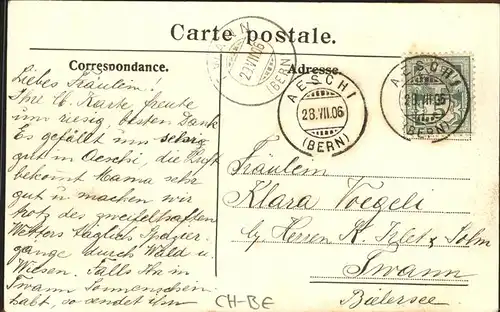 Carte postale.
Correspondance.
Adresse.
Liebes Fräulein!
Ihre lb. Karte freute
uns riesig, besten Dank
Es gefällt uns sehr
gut in Aeschi, die Luft
bekommt Mama sehr
gut u machen wir
trotz des zweifelhaften
Wetters täglich Spazier-
gänge durch Wald u.
Wiesen. Falls Ihr in
Twann Sonnenschein
habt, so sendet ihn
TWANN
29.VII.06
(BERN)
AESCHI
28.VII.06
(BERN)
AESCHI
28.VII.06
(BERN)
Fräulein
Klara Voegeli
by Herren K. & Sohn
Twann
Bielersee.
CH-BE